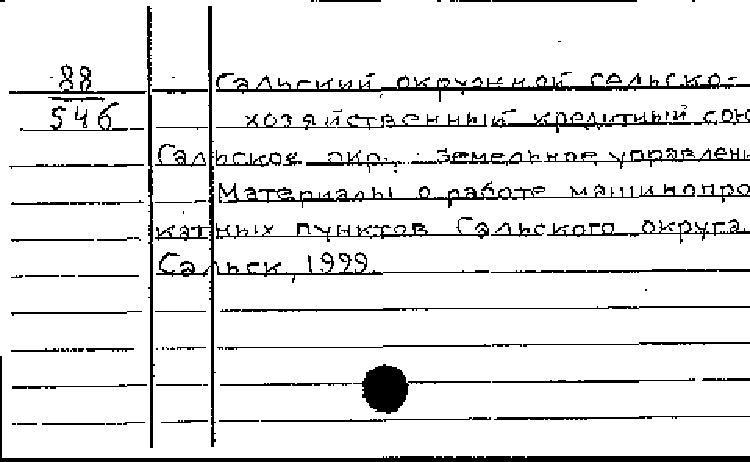 88
546
Сальский окружной сельско-
хозяйственный кредитный сою
Сальское окр. земельное управлени
Материалы о работе машинопро
катных пунктов Сальского округа.
Сальск, 1999.